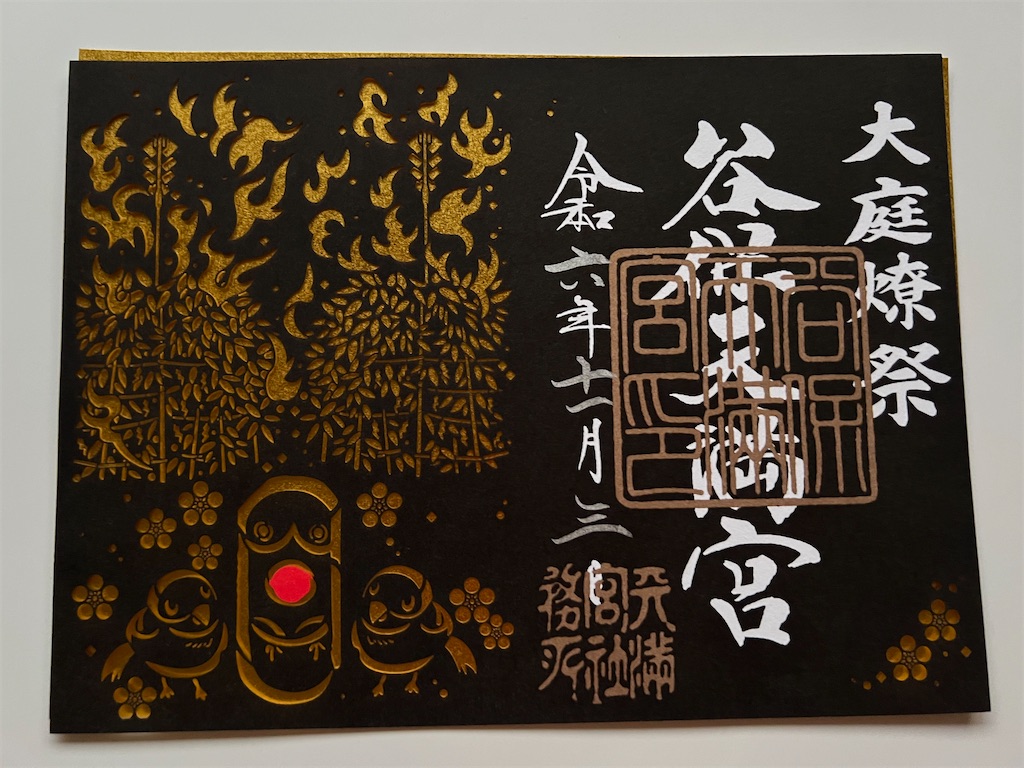 大庭燎祭
谷保天満宮
谷保
天満
宮印
令和六年十一月三日
天満
宮社
務所